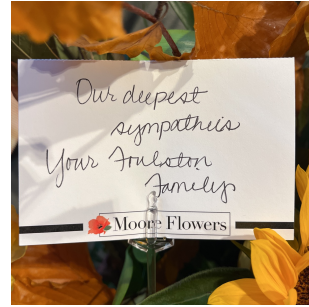 Our deepest
sympathies
Your Foulston
Family
Moore Flowers